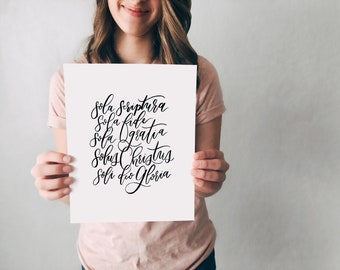 sola scriptura
sola fide
sola gratia
solus Christus
soli deo Gloria